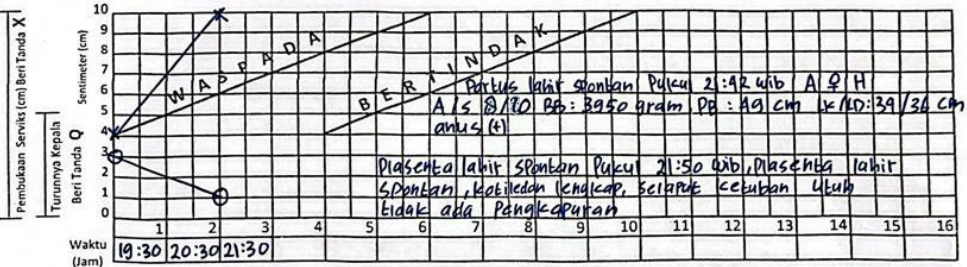 Pembukaan Serviks (cm) Beri Tanda X
Turunnya Kepala
Beri Tanda O
Sentimeter (cm)
10
9
8
7
6
5
4
3
2
1
0
WASPADA
BERTINDAK
Partus lahir spontan Pukul 21:42 wib A ♀ H
A/S 8/10 BB: 3950 gram PB: 49 cm LK/LD: 34/36 cm
anus (+)
Plasenta lahir spontan Pukul 21:50 wib, Plasenta lahir
spontan, kotiledon lengkap, selaput ketuban utuh
tidak ada Pengkapuran
1 2 3 4 5 6 7 8 9 10 11 12 13 14 15 16
Waktu
(Jam)
19:30 20:30 21:30